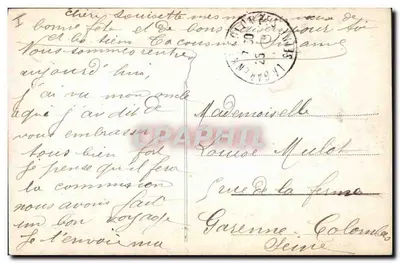 Chère Louisette mes
bonne fête et de bons pour toi
et les tiens Ta cousine
Nous sommes rentrés
aujourd'hui,
j'ai vu mon oncle
à qui j'ai dit de
vous embrasser
tous bien fort
Je pense qu'il fera
la commission
nous avons fait
un bon voyage
Je t'envoie ma
Mademoiselle
Louise Mulot
5 rue de la ferme
Garenne-Colombes
Seine
LA GARENNE